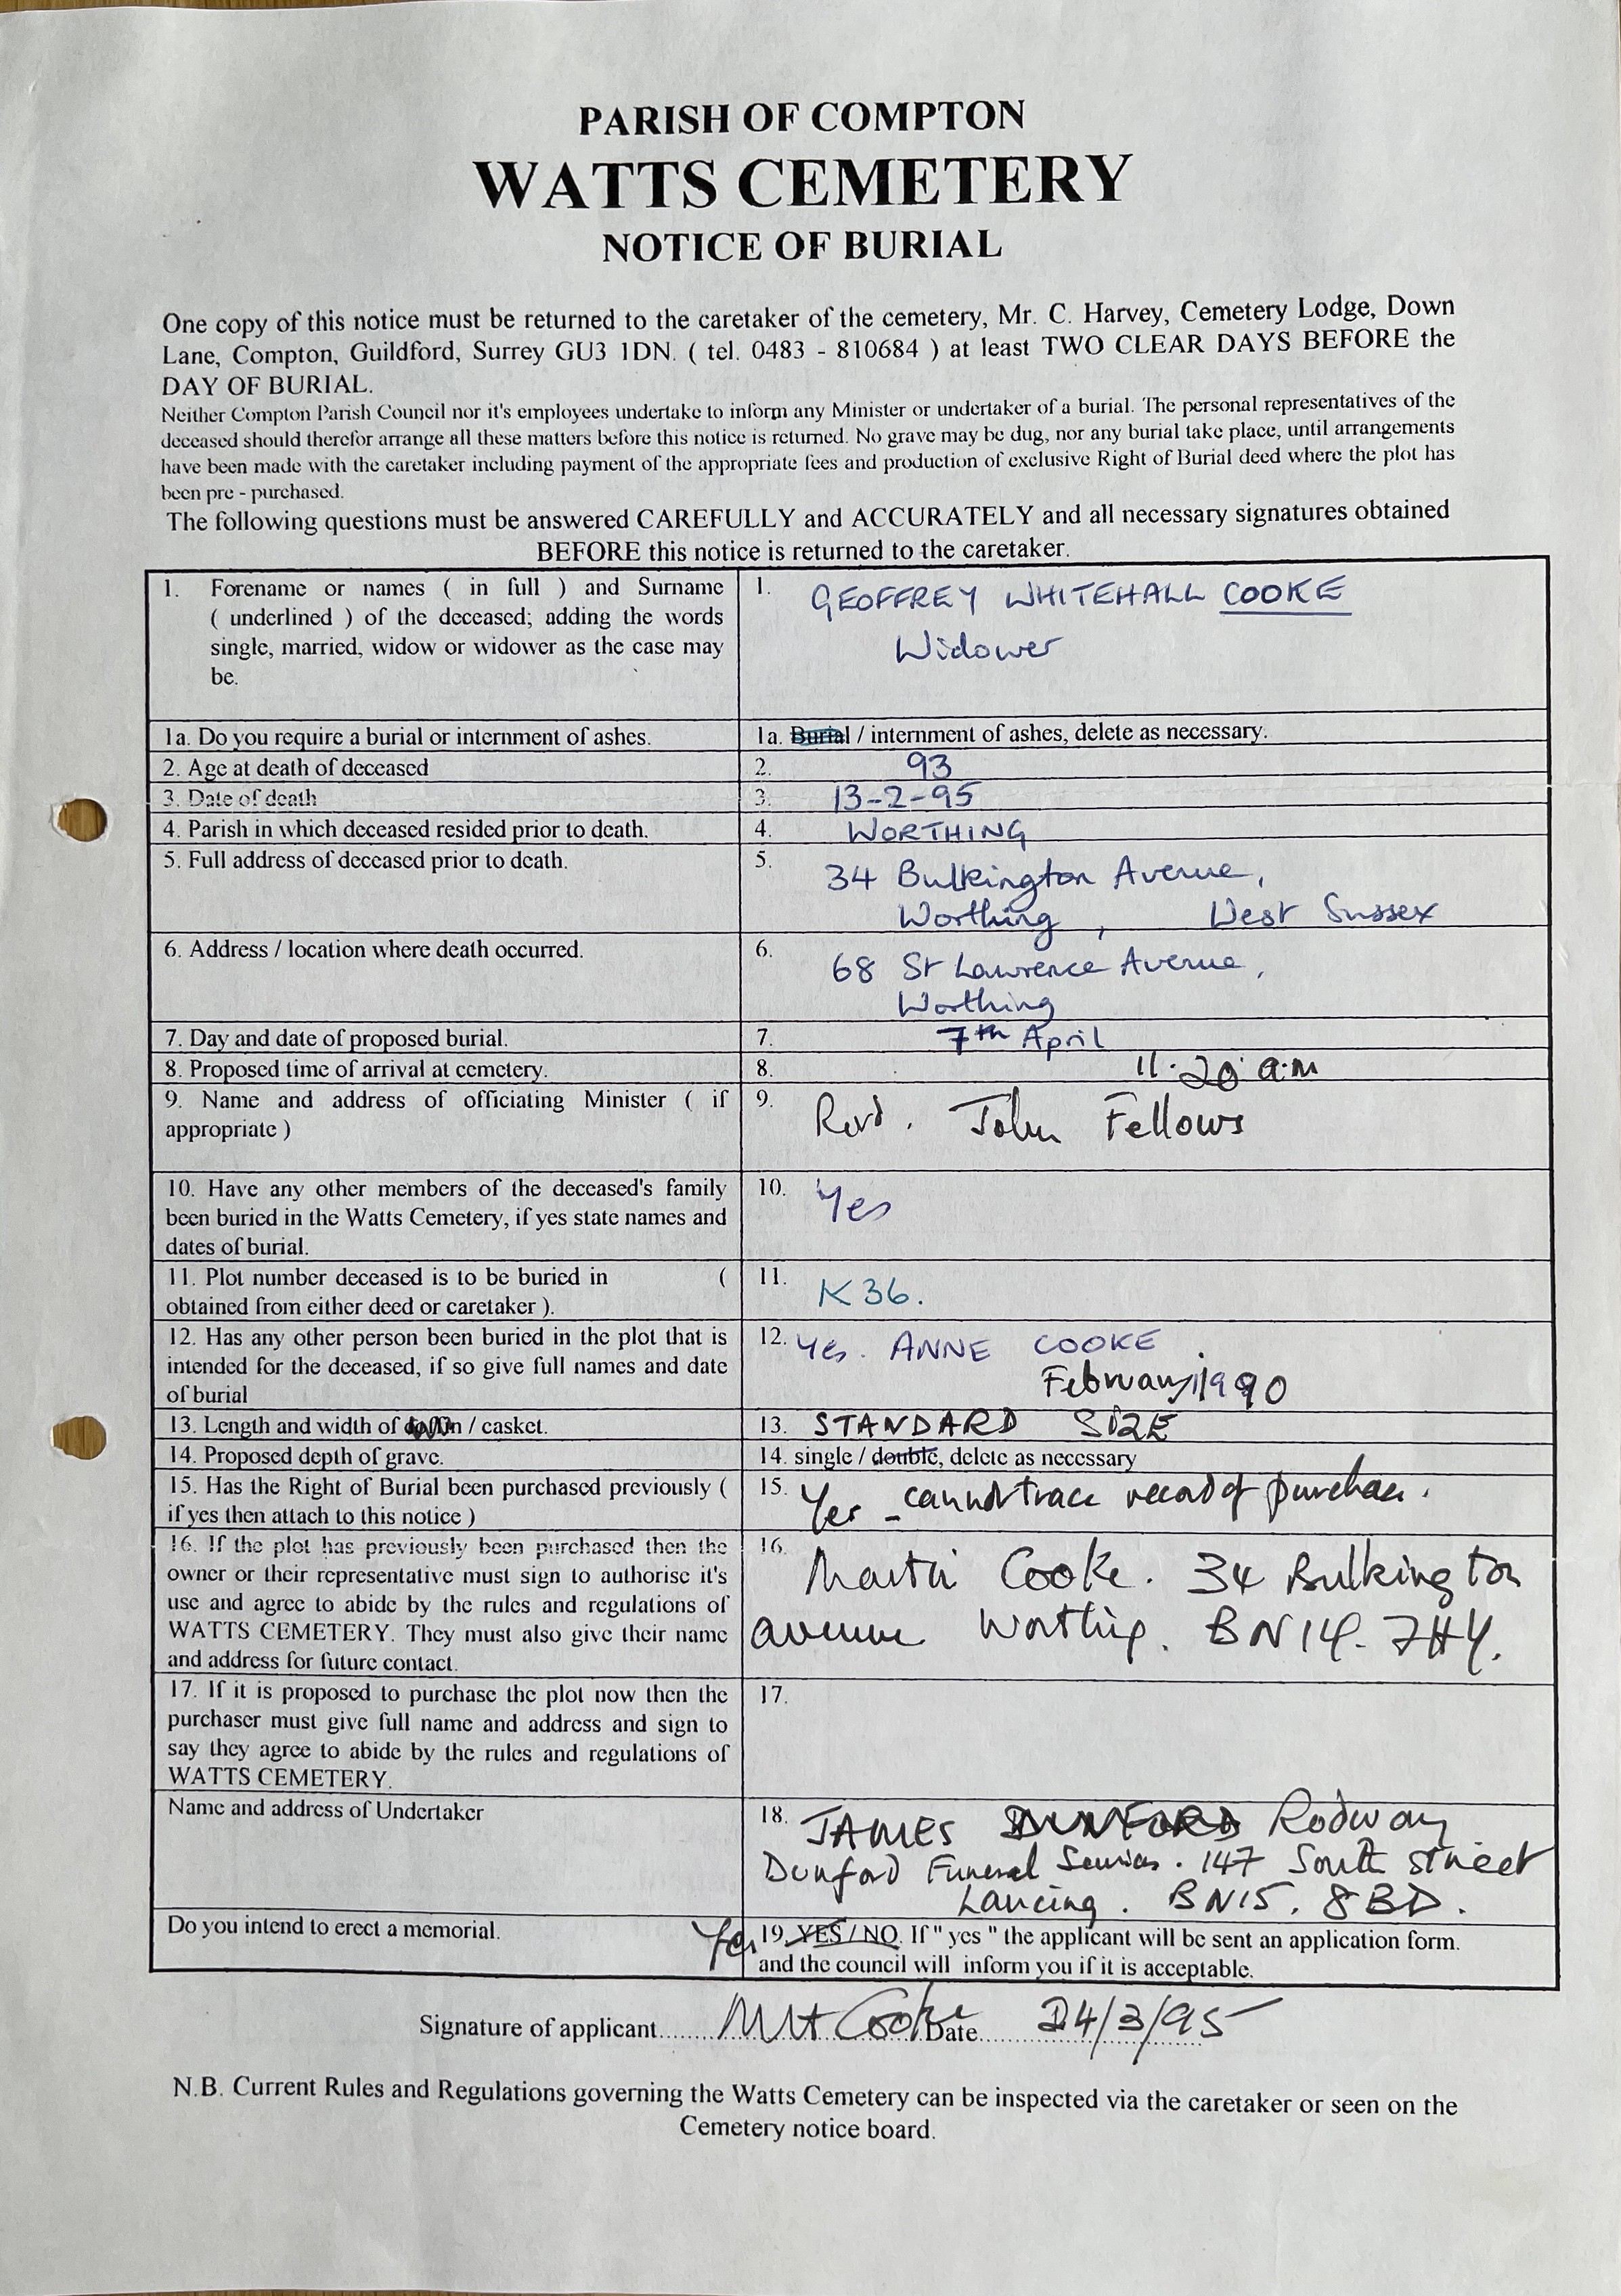 PARISH OF COMPTON
WATTS CEMETERY
NOTICE OF BURIAL
One copy of this notice must be returned to the caretaker of the cemetery, Mr. C. Harvey, Cemetery Lodge, Down
Lane, Compton, Guildford, Surrey GU3 1DN. ( tel. 0483 - 810684 ) at least TWO CLEAR DAYS BEFORE the
DAY OF BURIAL.
Neither Compton Parish Council nor it's employees undertake to inform any Minister or undertaker of a burial. The personal representatives of the
deceased should therefor arrange all these matters before this notice is returned. No grave may be dug, nor any burial take place, until arrangements
have been made with the caretaker including payment of the appropriate fees and production of exclusive Right of Burial deed where the plot has
been pre - purchased.
The following questions must be answered CAREFULLY and ACCURATELY and all necessary signatures obtained
BEFORE this notice is returned to the caretaker.
1. Forename or names ( in full ) and Surname
( underlined ) of the deceased; adding the words
single, married, widow or widower as the case may
be.
1. GEOFFREY WHITEHALL COOKE
Widower
1a. Do you require a burial or internment of ashes.
1a. Burial / internment of ashes, delete as necessary.
2. Age at death of deceased
2. 93
3. Date of death
3. 13-2-95
4. Parish in which deceased resided prior to death.
4. WORTHING
5. Full address of deceased prior to death.
5. 34 Bulkington Avenue,
Worthing, West Sussex
6. Address / location where death occurred.
6. 68 St Lawrence Avenue,
Worthing
7. Day and date of proposed burial.
7. 7th April
8. Proposed time of arrival at cemetery.
8. 11.20 a.m
9. Name and address of officiating Minister ( if
appropriate )
9. Revd. John Fellows
10. Have any other members of the deceased's family
been buried in the Watts Cemetery, if yes state names and
dates of burial.
10. Yes
11. Plot number deceased is to be buried in (
obtained from either deed or caretaker ).
11. K36.
12. Has any other person been buried in the plot that is
intended for the deceased, if so give full names and date
of burial
12. Yes. ANNE COOKE.
February 1990
13. Length and width of coffin / casket.
13. STANDARD SIZE
14. Proposed depth of grave.
14. single / double, delete as necessary
15. Has the Right of Burial been purchased previously (
if yes then attach to this notice )
15. Yes - cannot trace record of purchase.
16. If the plot has previously been purchased then the
owner or their representative must sign to authorise it's
use and agree to abide by the rules and regulations of
WATTS CEMETERY. They must also give their name
and address for future contact.
16. Martin Cooke. 34 Bulkington
avenue Worthing. BN14. 7HY.
17. If it is proposed to purchase the plot now then the
purchaser must give full name and address and sign to
say they agree to abide by the rules and regulations of
WATTS CEMETERY.
17.
Name and address of Undertaker
18. JAMES DUNFORD Rodway
Dunford Funeral Services. 147 South Street
Lancing. BN15. 8BD.
Do you intend to erect a memorial.
Yes 19. YES / NO. If " yes " the applicant will be sent an application form.
and the council will inform you if it is acceptable.
Signature of applicant........ Cooke Date.... 24/3/95
N.B. Current Rules and Regulations governing the Watts Cemetery can be inspected via the caretaker or seen on the
Cemetery notice board.